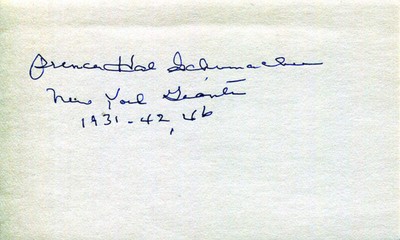 Prince Hal Schumacher
New York Giants
1931-42, 46